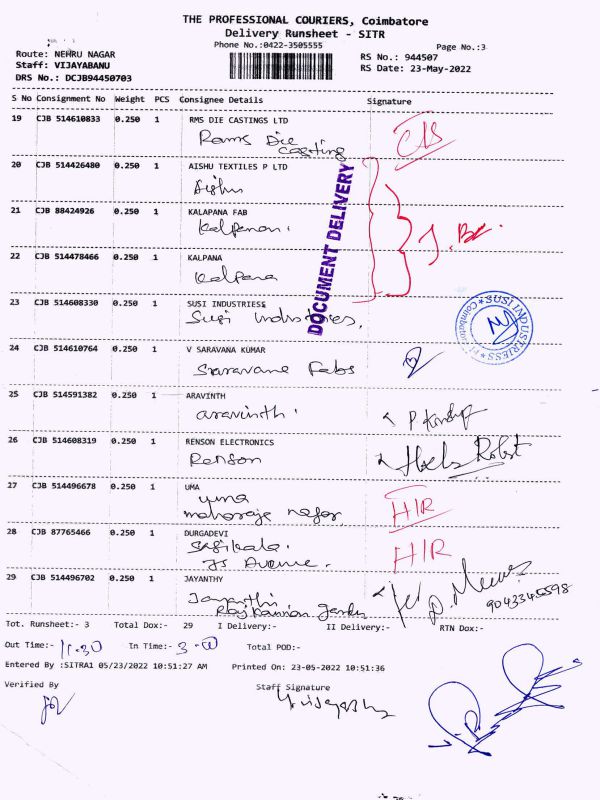 THE PROFESSIONAL COURIERS, Coimbatore
Delivery Runsheet - SITR
Phone No.:0422-3505555
Page No.:3
Route: NEHRU NAGAR
RS No.: 944507
Staff: VIJAYABANU
RS Date: 23-May-2022
DRS No.: DCJB94450703
S No Consignment No Weight PCS Consignee Details Signature
19 CJB 514610833 0.250 1 RMS DIE CASTINGS LTD
Rams Die
casting
20 CJB 514426480 0.250 1 AISHU TEXTILES P LTD
Aishu
DOCUMENT DELIVERY
21 CJB 88424926 0.250 1 KALAPANA FAB
Kalpanan.
22 CJB 514478466 0.250 1 KALPANA
Kalpana
23 CJB 514608330 0.250 1 SUSI INDUSTRIESS
Susi Industries,
SUSI INDUSTRIESS
Coimbatore
24 CJB 514610764 0.250 1 V SARAVANA KUMAR
Saravana Fabs
25 CJB 514591382 0.250 1 ARAVINTH
aravinth.
26 CJB 514608319 0.250 1 RENSON ELECTRONICS
Renson
27 CJB 514496678 0.250 1 UMA
uma
maharaja nagar
H/R
28 CJB 87765466 0.250 1 DURGADEVI
Sasikala.
JS Avenue.
H/R
29 CJB 514496702 0.250 1 JAYANTHY
Jayanthi
Tot. Runsheet:- 3 Total Dox:- 29 I Delivery:- II Delivery:- RTN Dox:-
Out Time:- 11.30 In Time:- 3.00 Total POD:-
Entered By :SITRA1 05/23/2022 10:51:27 AM Printed On: 23-05-2022 10:51:36
Verified By Staff Signature